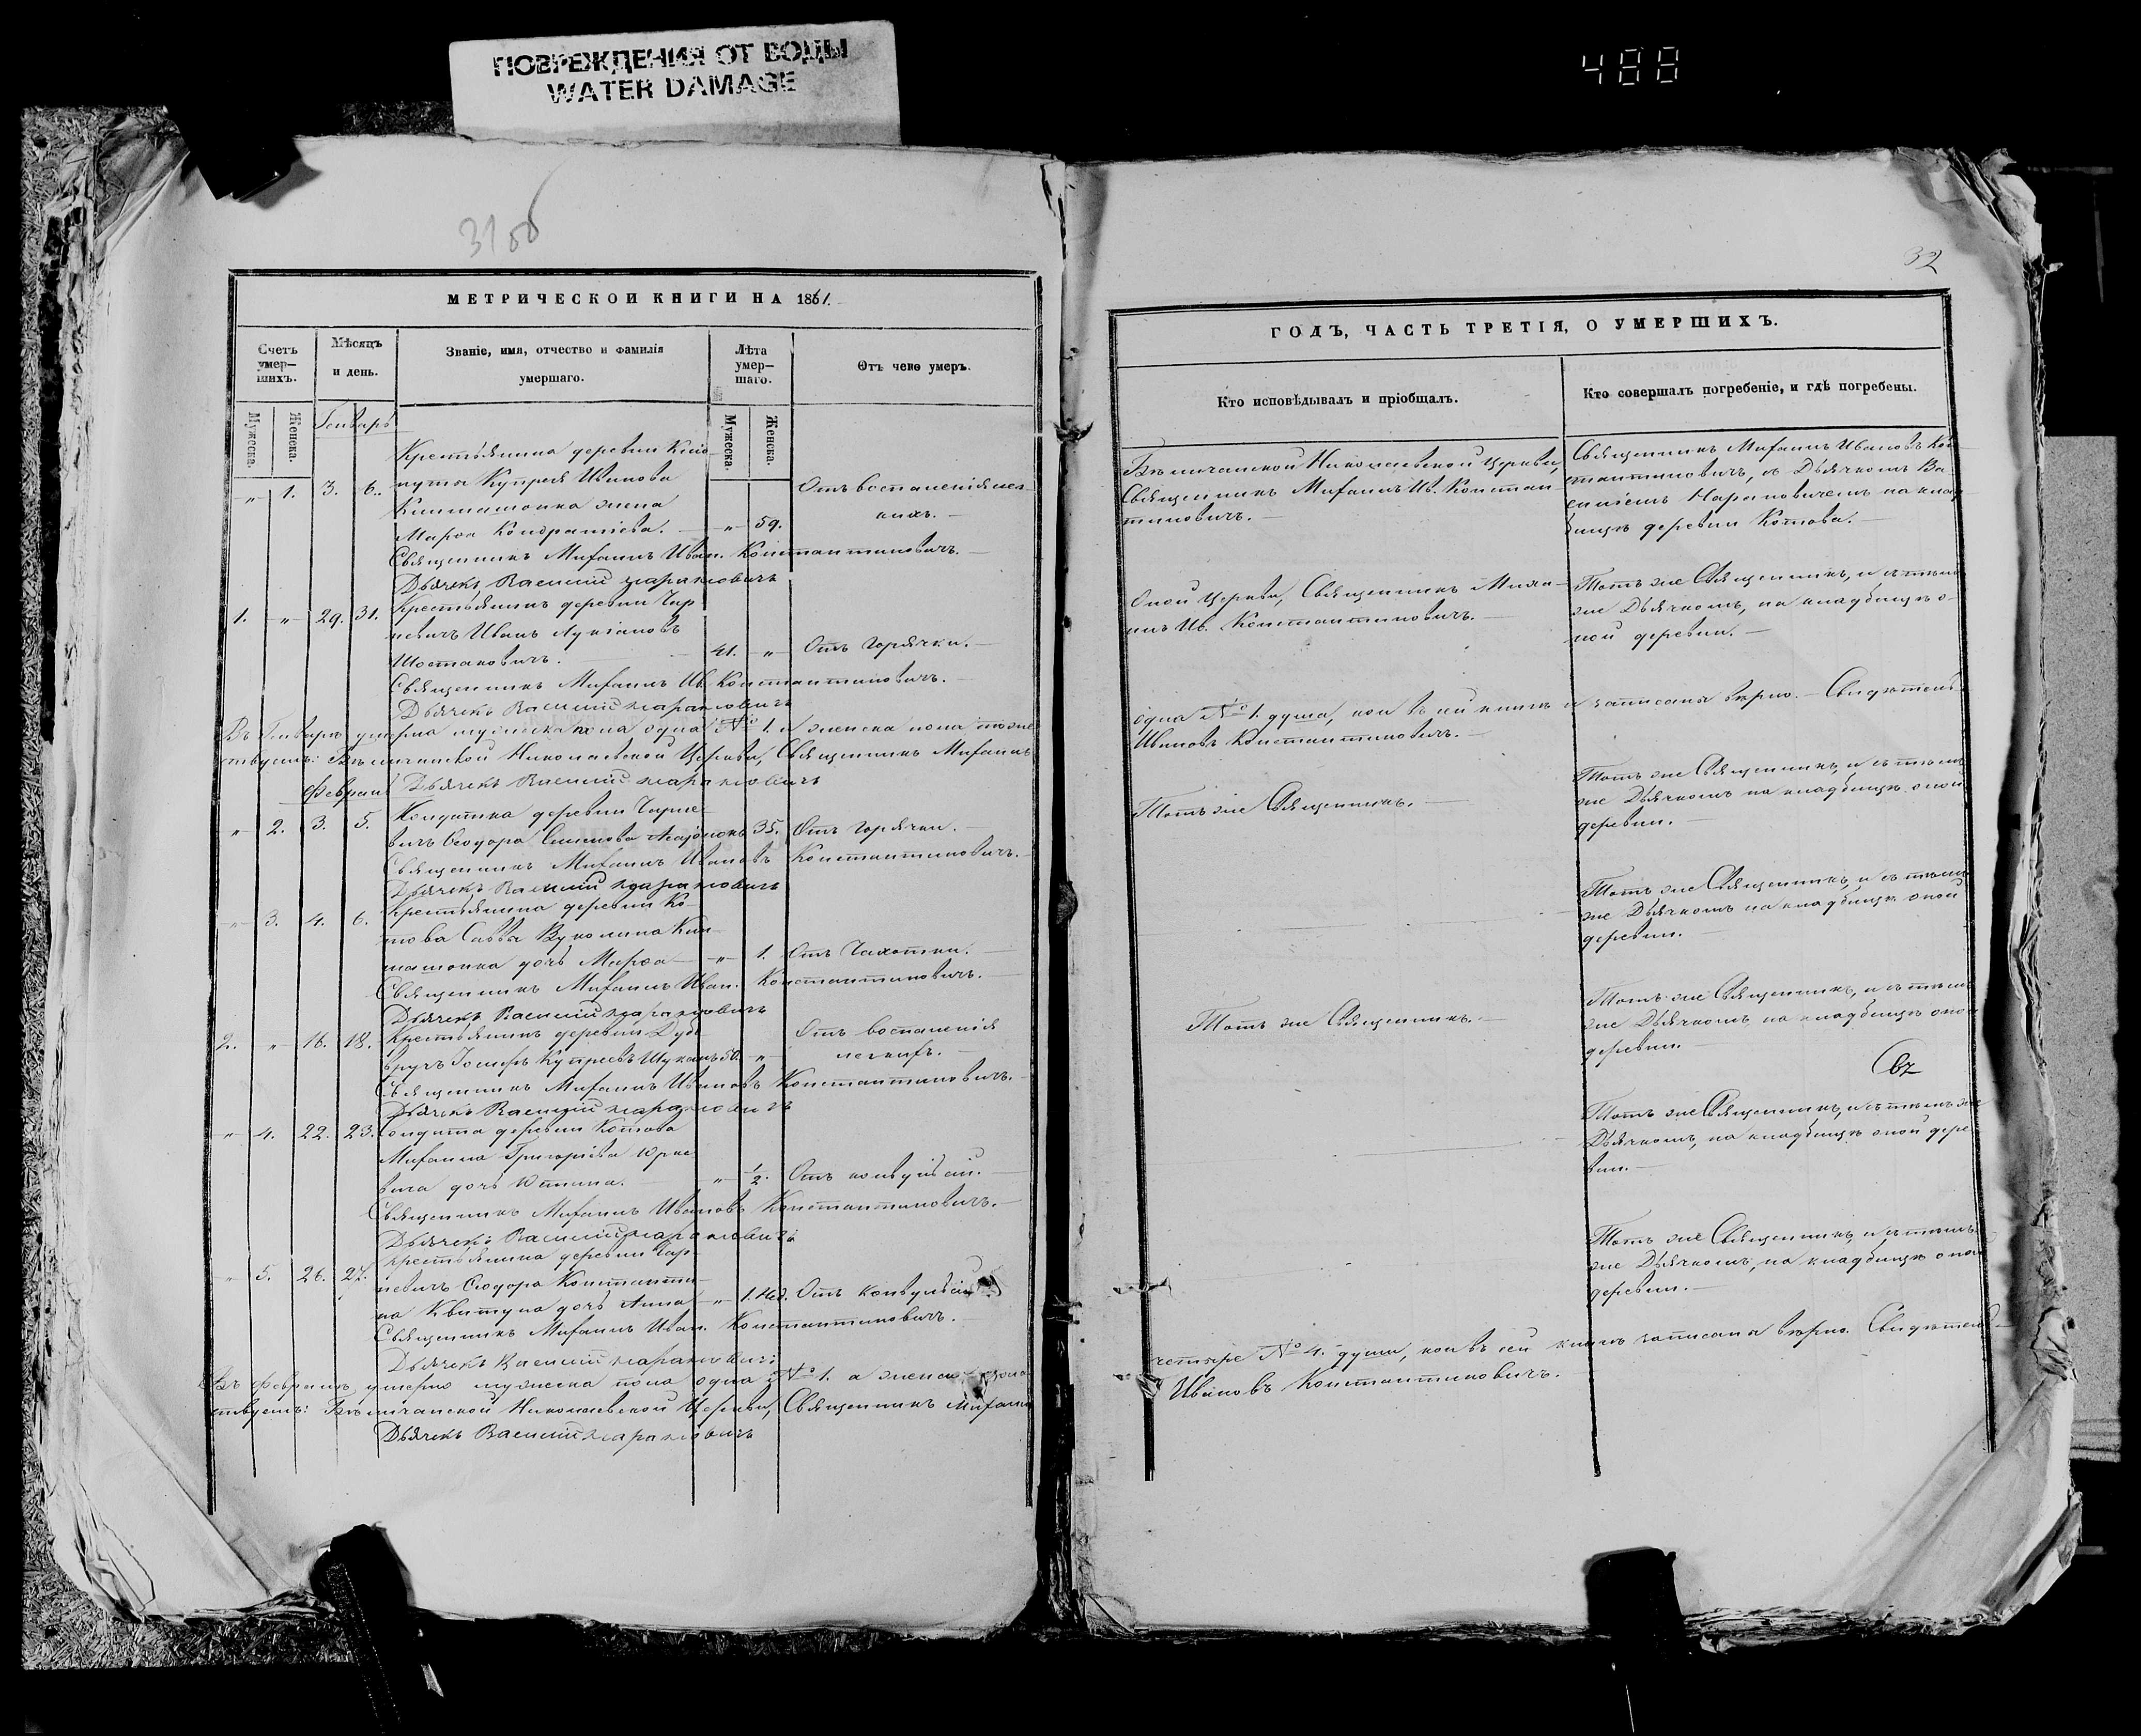 ПОВРЕЖДЕНИЯ ОТ ВОДЫ
WATER DAMAGE
488
31об
МЕТРИЧЕСКОЙ КНИГИ НА 1861.
Счетъ умер-шихъ.
Мѣсяцъ и день.
Званіе, имя, отчество и фамилія умершаго.
Лѣта умер-шаго.
Отъ чего умеръ.
Мужеска.
Женска.
Генварь
Мужеска.
Женска.
Крестьянина деревни
„ 1. 3. 6. Купрея Иванова Отъ воспаленія лег-
жена кихъ.
Марѳа Кондратіева. „ 59.
Священникъ Михаилъ Иван. Константиновичъ.
Дьячекъ Василий
1. „ 29. 31. Крестьянинъ деревни Чер
невичъ Иванъ Лукіановъ
Шостаковичъ. 41. „ Отъ Горячки.
Священникъ Михаилъ Ив. Константиновичъ.
Дьячекъ Василий
Въ Генварѣ умерла мужеска пола одна №1. и женска пола тоже
ствуетъ: Николаевской Церкви, Священникъ Михаилъ
Февраль Дьячекъ Василий
„ 2. 3. 5. Солдатка деревни Черне
вичъ Ѳеодора 35. Отъ Горячки.
Священникъ Михаилъ Ивановъ Константиновичъ.
Дьячекъ Василий
„ 3. 4. 6. Крестьянина деревни Ко
това Савва
дочь Марѳа „ 1. Отъ Чахотки.
Священникъ Михаилъ Иван. Константиновичъ.
Дьячекъ Василий
2. „ 16. 18. Крестьянинъ деревни Дуб Отъ воспаленія
вручъ Іосифъ 50. „ легкихъ.
Священникъ Михаилъ Ивановъ Константиновичъ.
Дьячекъ Василий
„ 4. 22. 23. Солдата деревни Котова
Михаила Григоріева Юрке
вича дочь „ ½. Отъ конвульсій.
Священникъ Михаилъ Ивановъ Константиновичъ.
Дьячекъ Василий
„ 5. 26. 27. Крестьянина деревни Чер
невичъ Ѳеодора Константи
на дочь Анна „ 1. нед. Отъ конвульсій
Священникъ Михаилъ Иван. Константиновичъ.
Дьячекъ Василий
Въ Февралѣ умерло мужеска пола одна №1. а женска пола
ствуетъ: Николаевской Церкви, Священникъ Михаилъ
Дьячекъ Василий
32
ГОДЪ, ЧАСТЬ ТРЕТІЯ, О УМЕРШИХЪ.
Кто исповѣдывалъ и пріобщалъ.
Кто совершалъ погребеніе, и гдѣ погребены.
Николаевской Церкви,
Священникъ Михаилъ Ив. Констан
тиновичъ.
Священникъ Михаилъ Ивановъ Кон
стантиновичъ, съ Дьячкомъ Ва
силіемъ на клад
бищѣ деревни Котова.
Оной Церкви, Священникъ Миха-
илъ Ив. Константиновичъ.
Тотъ же Священникъ, и съ тѣмъ
же Дьячкомъ, на кладбищѣ о-
ной деревни.
одна №1. душа, кои въ сей книгѣ и записаны вѣрно. Свидѣтель
Ивановъ Константиновичъ.
Тотъ же Священникъ.
Тотъ же Священникъ, и съ тѣмъ
же Дьячкомъ на кладбищѣ оной
деревни.
Тотъ же Священникъ, и съ тѣмъ
же Дьячкомъ на кладбищѣ оной
деревни.
Тотъ же Священникъ.
Тотъ же Священникъ, и съ тѣмъ
же Дьячкомъ, на кладбищѣ оной
деревни.
Тотъ же Священникъ, и съ тѣмъ же
Дьячкомъ, на кладбищѣ оной дере
вни.
Тотъ же Священникъ, и съ тѣмъ
же Дьячкомъ, на кладбищѣ оной
деревни.
четыре №4. души, кои въ сей книгѣ записаны вѣрно. Свидѣтель
Ивановъ Константиновичъ.